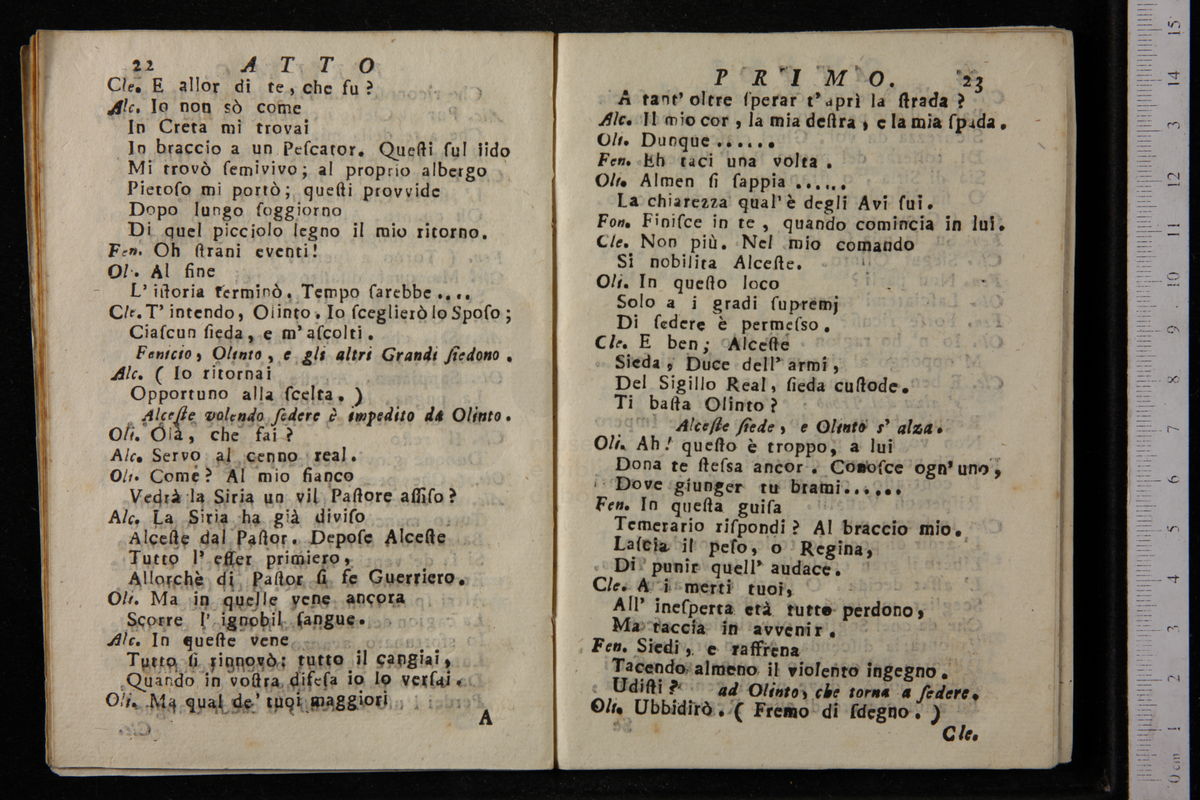 22 ATTO
Cle. E allor di te, che fu?
Alc. Io non sò come
In Creta mi trovai
In braccio a un Peſcator. Queſti ſul lido
Mi trovò ſemivivo; al proprio albergo
Pietoſo mi portò; queſti provvide
Dopo lungo ſoggiorno
Di quel picciolo legno il mio ritorno.
Fen. Oh ſtrani eventi!
Ol. Al fine
L' iſtoria terminò. Tempo ſarebbe....
Cle. T' intendo, Olinto. Io ſceglierò lo Spoſo;
Ciaſcun ſieda, e m' aſcolti.
Fenicio, Olinto, e gli altri Grandi ſiedono.
Alc. ( Io ritornai
Opportuno alla ſcelta. )
Alceſte volendo ſedere è impedito da Olinto.
Oli. Olà, che fai?
Alc. Servo al cenno real.
Oli. Come? Al mio fianco
Vedrà la Siria un vil Paſtore aſſiſo?
Alc. La Siria ha già diviſo
Alceſte dal Paſtor. Depoſe Alceſte
Tutto l' eſſer primiero,
Allorchè di Paſtor ſi fe Guerriero.
Oli. Ma in quelle vene ancora
Scorre l' ignobil ſangue.
Alc. In queſte vene
Tutto ſi rinnovò; tutto il cangiai,
Quando in voſtra difeſa io lo verſai.
Oli. Ma qual de' tuoi maggiori
A
PRIMO. 23
A tant' oltre ſperar t' aprì la ſtrada?
Alc. Il mio cor, la mia deſtra, e la mia ſpada.
Oli. Dunque......
Fen. Eh taci una volta.
Oli. Almen ſi ſappia......
La chiarezza qual' è degli Avi ſui.
Fon. Finiſce in te, quando comincia in lui.
Cle. Non più. Nel mio comando
Si nobilita Alceſte.
Oli. In queſto loco
Solo a i gradi ſupremj
Di ſedere è permeſso.
Cle. E ben; Alceſte
Sieda, Duce dell' armi,
Del Sigillo Real, ſieda cuſtode.
Ti baſta Olinto?
Alceſte ſiede, e Olinto s' alza.
Oli. Ah! queſto è troppo, a lui
Dona te ſteſsa ancor. Conoſce ogn' uno,
Dove giunger tu brami......
Fen. In queſta guiſa
Temerario riſpondi? Al braccio mio.
Laſcia il peſo, o Regina,
Di punir quell' audace.
Cle. A i merti tuoi,
All' ineſperta età tutto perdono,
Ma taccia in avvenir.
Fen. Siedi, e raffrena
Tacendo almeno il violento ingegno.
Udiſti? ad Olinto, che torna a ſedere.
Oli. Ubbidirò. ( Fremo di ſdegno. )
Cle.
0 cm 1 2 3 4 5 6 7 8 9 10 11 12 13 14 15